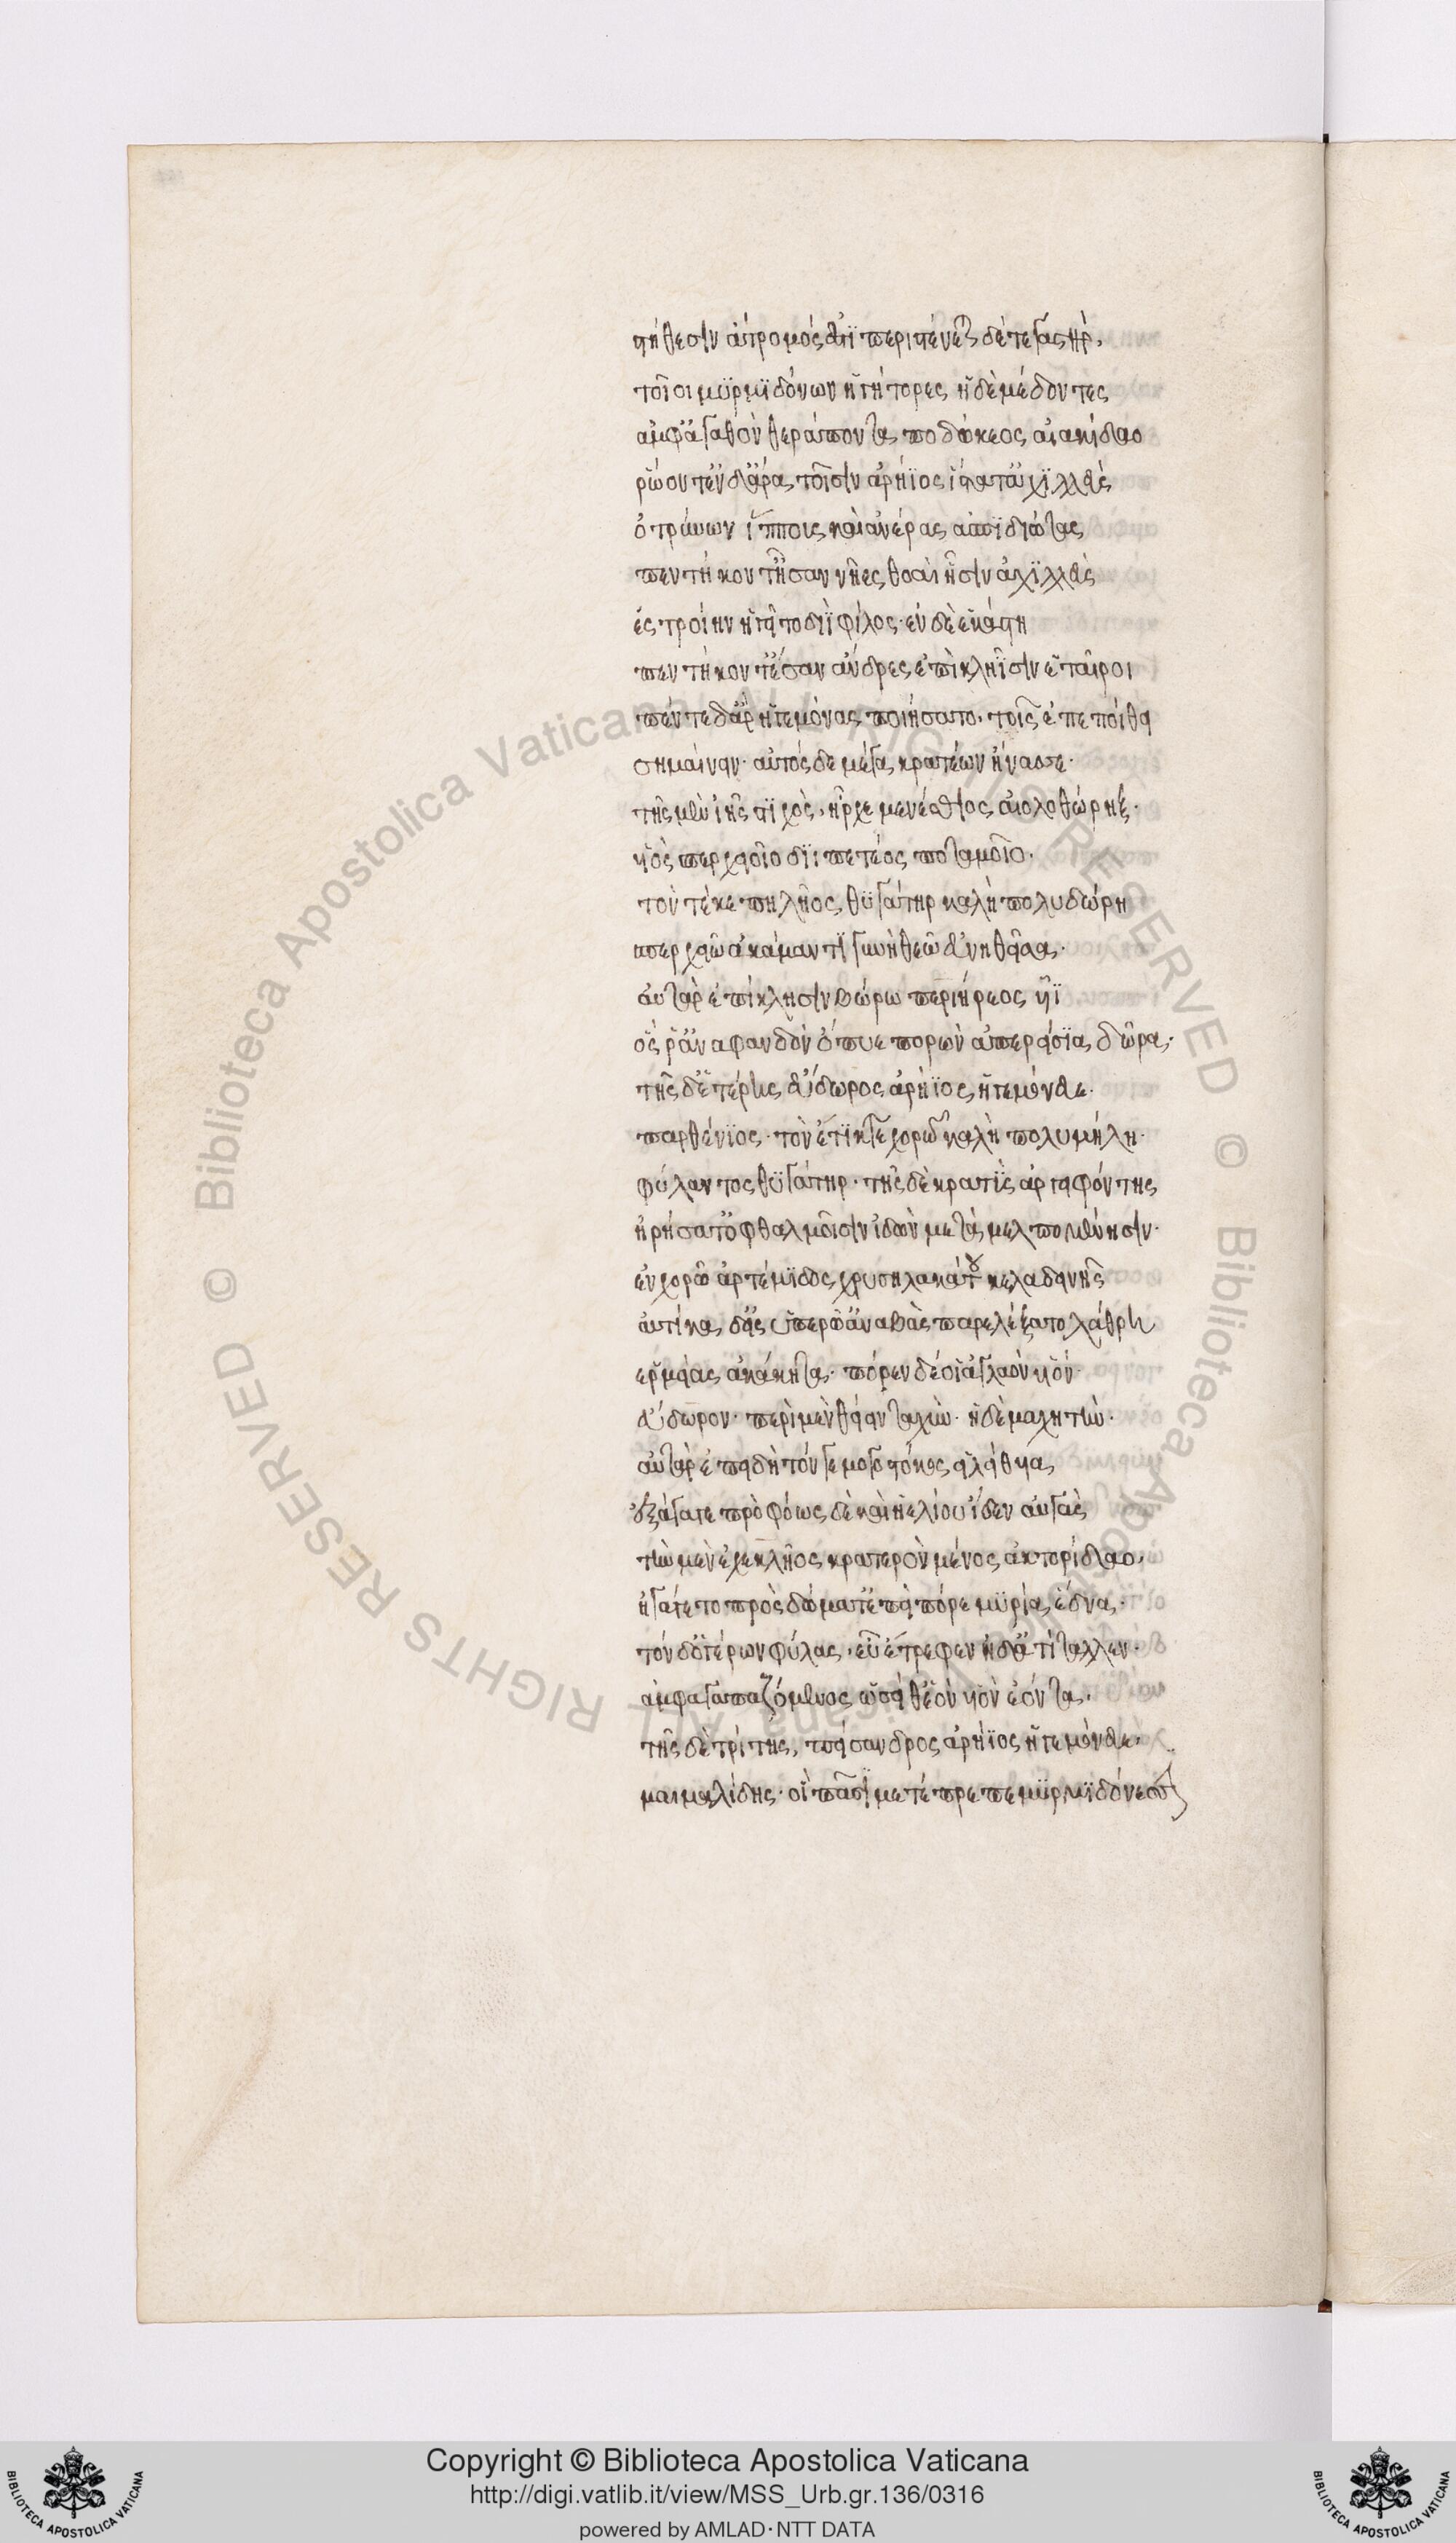 στήθεσιν ἄτρομός ἐστϊ περιστένεται δέ τε γαστήρ,
τοῖοι μϋρμϊδόνων ἡγήτορες ἠδὲ μέδοντες
ἀμφ' ἀγαθὸν θεράποντα ποδώκεος αἰακίδαο
ῥώοντ' ἐν δ' ἄρα τοῖσιν ἀρήϊος ἵστατ' ἀχϊλλεὺς
ὀτρύνων ἵπποις καὶ ἀνέρας ἀσπϊδιώτας
πεντήκοντ' ἦσαν νῆες θοαὶ ᾗσιν ἀχϊλλεὺς
ἐς τροίην ἡγεῖτο διῒ φίλος· ἐν δὲ ἑκάστη
πεντήκοντ' ἔσαν ἄνδρες ἐπὶ κληῗσιν ἑταῖροι
πέντε δ' ἄρ' ἡγεμόνας ποιήσατο· τοῖς ἐπεποίθει
σημαίνειν· αὐτὸς δὲ μέγα κρατέων ἤνασσε·
τῆς μὲν ἰῆς στϊχὸς, ἦρχε μενέσθιος αἰολοθώρηξ·
υἱὸς σπερχειοῖο διϊπετέος ποταμοῖο.
τὸν τέκε πηλῆος θϋγάτηρ καλὴ πολυδώρη
σπερχειῶ ἀκάμαντϊ γυνὴ θεῶ εὐνηθεῖσα·
αὐτὰρ ἐπίκλησιν βώρω περιήρεος υἷϊ
ὅς ῥ' ἀναφανδὸν ὄπυε πορὼν ἀπερείσϊα δῶρα·
τῆς δ' ἑτέρης εὔδωρος ἀρήϊος ἡγεμόνευε·
παρθένϊος· τὸν ἔτϊκτε χορῶ καλὴ πολυμήλη·
φύλαντος θϋγάτηρ· τῆς δὲ κρατῒς ἀργειφόντης
ἠρήσατ' ὀφθαλμοῖσιν ἰδὼν μετὰ μελπομένησιν·
ἐν χορῶ ἀρτέμϊδος χρυσηλακάτου κελαδεινῆς
αὐτίκα δ' εἰς ὑπερῶ' ἀναβὰς παρελέξατο λάθρη
ἑρμείας ἀκάκητα· πόρεν δέ οἱ ἀγλαὸν υἱόν·
εὔδωρον· περὶ μὲν θείειν ταχὺν· ἠδὲ μαχητὴν·
αὐτὰρ ἐπειδὴ τόν γε μογοστόκος εἰλείθυια
ἐξάγαγε πρὸ φόως δὲ καὶ ἠελίου ἴδεν αὐγὰς
τὴν μὲν ἐχεκλῆος κρατερὸν μένος ἀκτορίδαο,
ἠγάγετο πρὸς δώματ' ἐπεὶ πόρε μϋρία ἕδνα·
τὸν δ' ὁ γέρων φύλας, εὖ ἔτρεφεν ἠδ' ἀτίταλλεν·
ἀμφαγαπαζόμενος ὡσεί θ' ἑὸν υἱὸν ἐόντα,
τῆς δὲ τρίτης, πείσανδρος ἀρήϊος ἡγεμόνευε,
μαιμαλίδης· ὃς πᾶσϊ μετέπρεπε μϋρμϊδόνεσσι
Copyright © Biblioteca Apostolica Vaticana
http://digi.vatlib.it/view/MSS_Urb.gr.136/0316
powered by AMLAD·NTT DATA